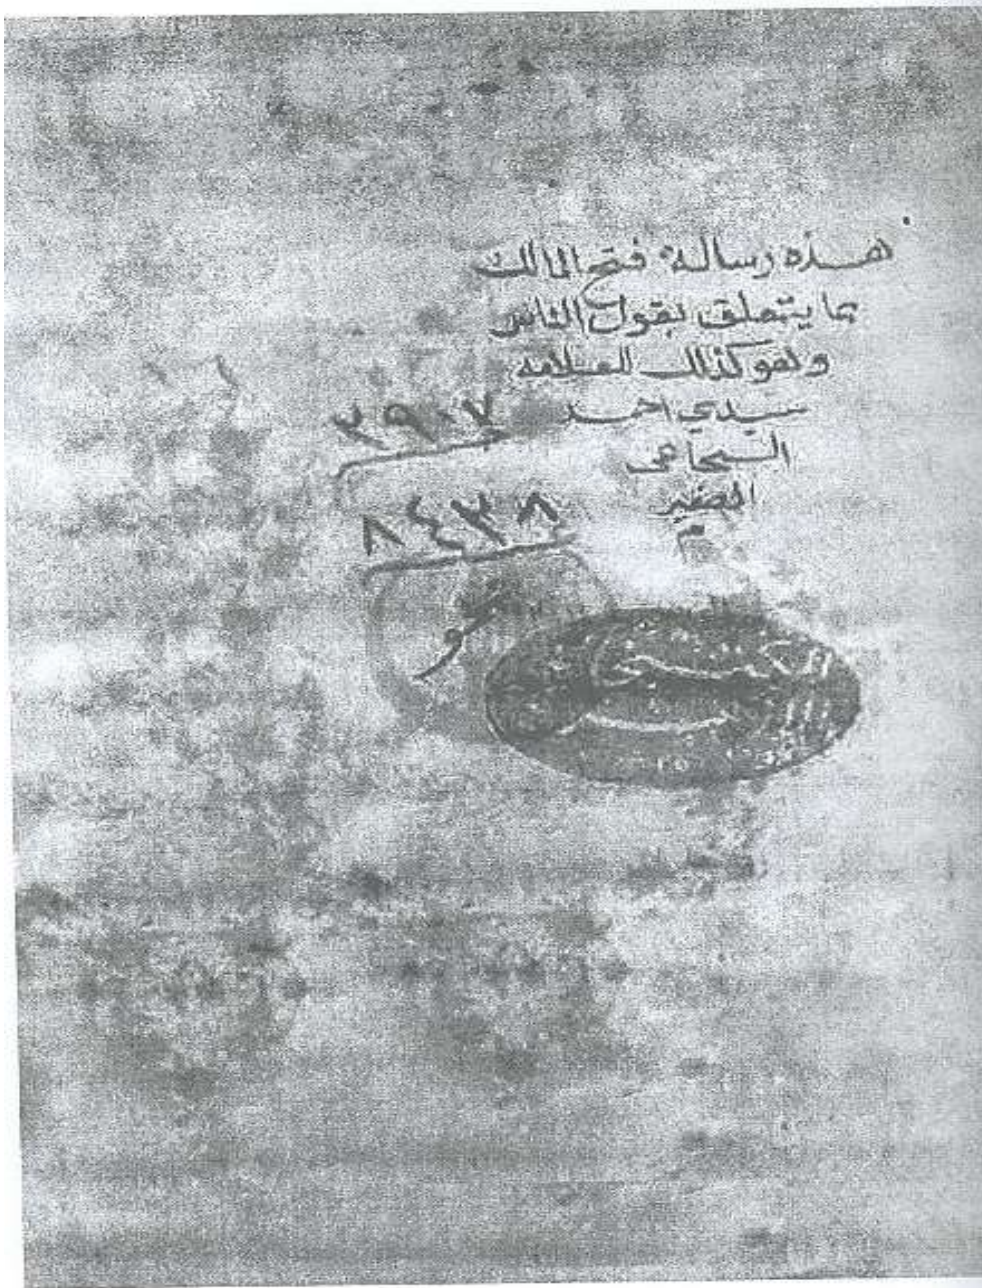 هذه رسالة فتح المالك
بما يتعلق بقول الناس
وهو كذلك للعلامه
سيدي احمد
السجاعي
الصغير
م
٢٩٠٧
٨٤٣٨
نحو